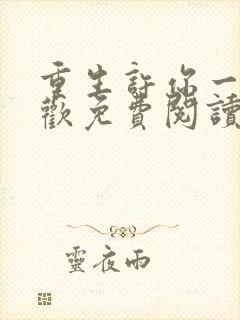 重生許你一
歡免費閱讀
靈夜雨